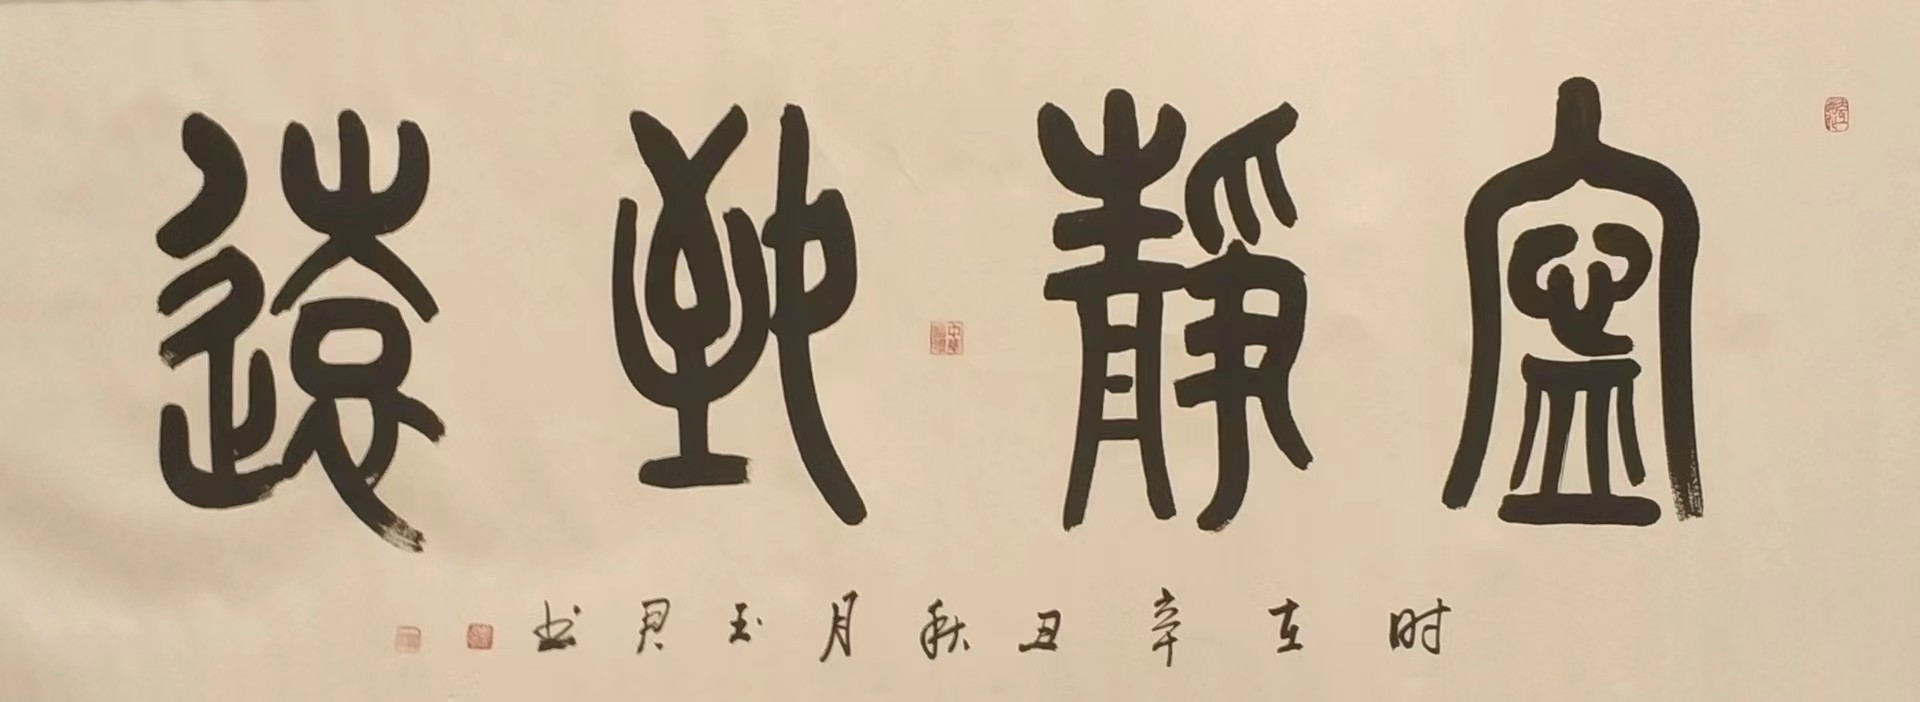 寧靜致遠
时在辛丑秋月玉君书